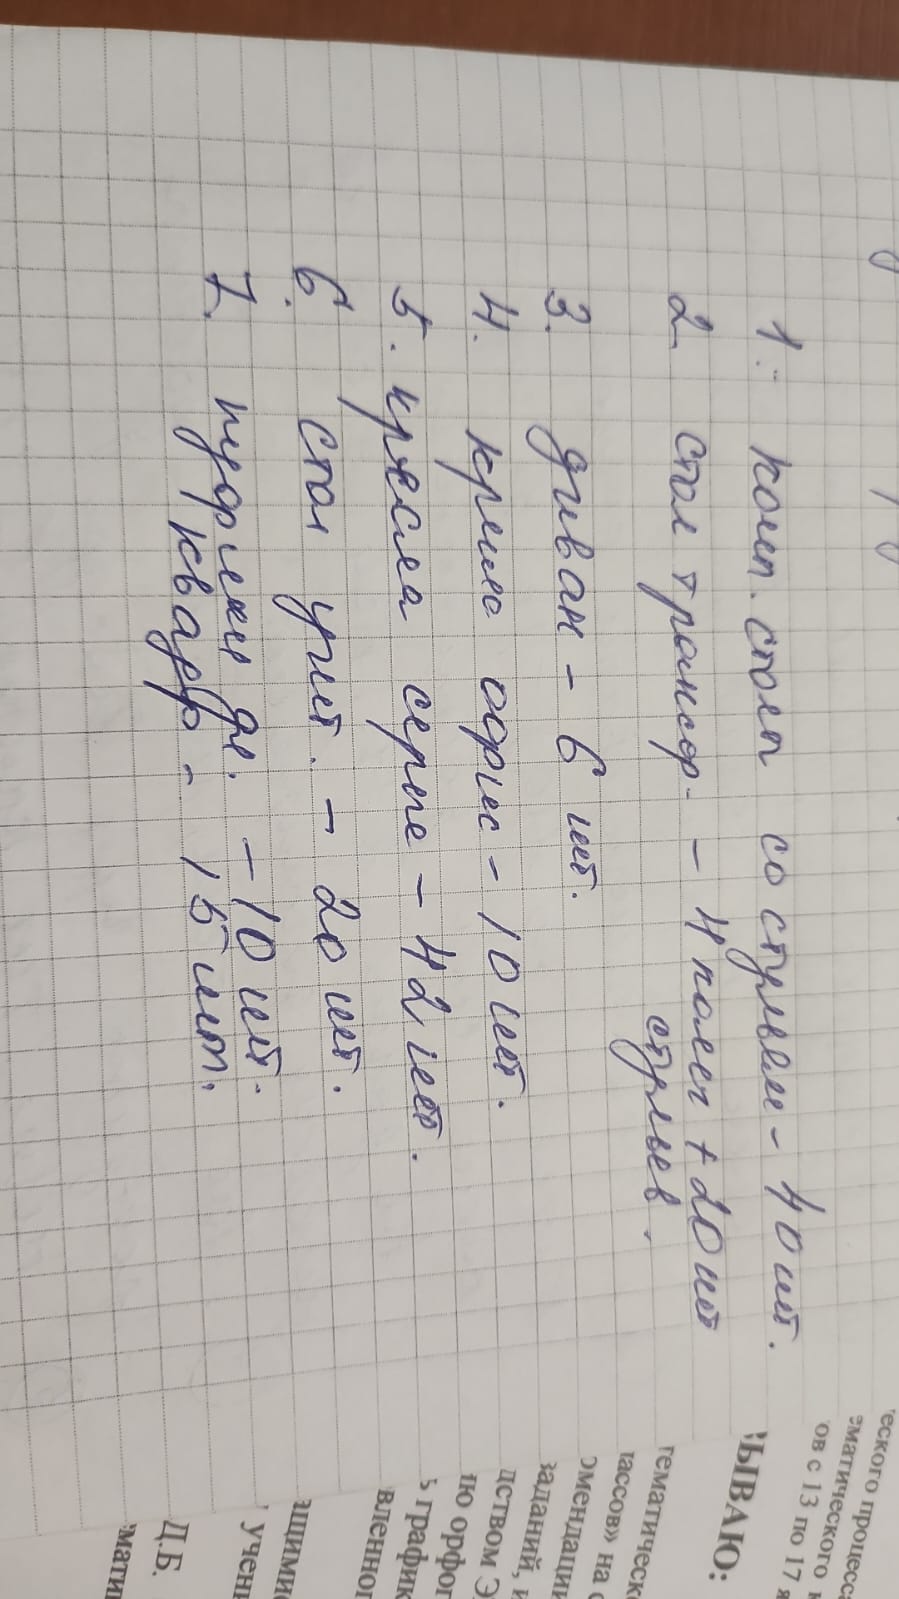 1. комп. стол со стульями - 40 шт.
2. стол трансф. - 4 компл + 20 шт
стульев.
3. диван - 6 шт.
4. кресло офис - 10 шт.
5. кресла серые - 42 шт.
6. стол учит. - 20 шт.
7. пуфики - 10 шт.
квадр. 15 шт.
еского процесса
ематического
ов с 13 по 17 я
ЫВАЮ:
тематическ
лассов» на
омендации
заданий, и
дством Э
ю орфог
график
вленног
ащими
учен
Д.Б.
мати